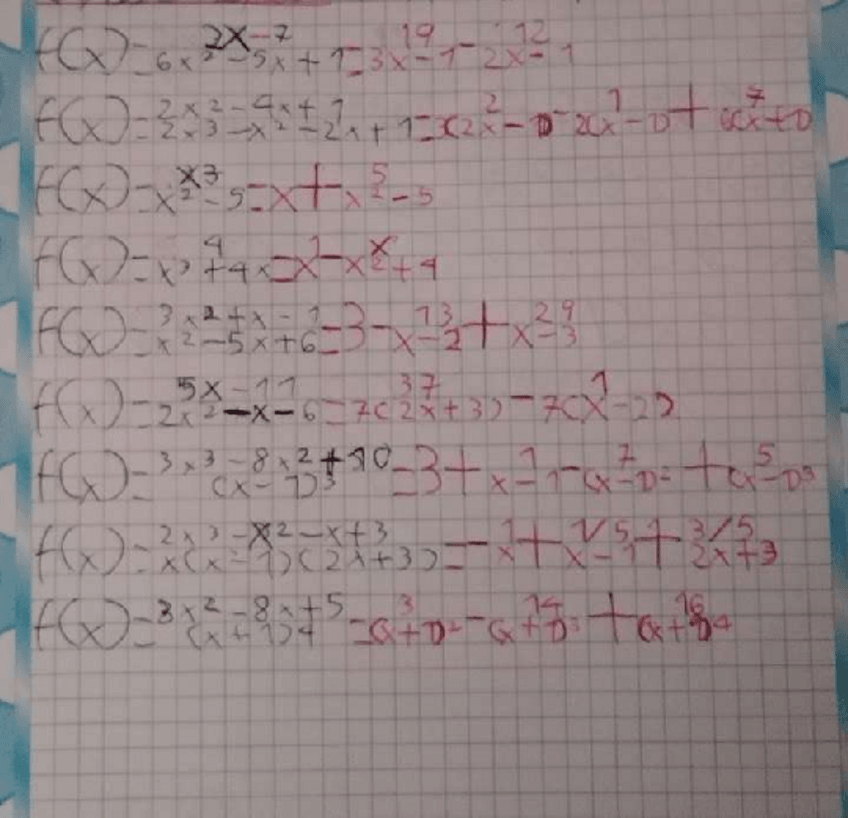 f(x)=2x-7/6x²-5x+1=19/3x-1-12/2x-1
f(x)=2x²-4x+1/2x³-x²-2x+1=2/(2x-1)-1/2(x-1)+7/(x+1)
f(x)=x3/x²-5=x+5/x²-5
f(x)=4/x³+4x=1/x-x/x²+4
f(x)=3x²+x-1/x²-5x+6=3-13/x-2+29/x-3
f(x)=5x-11/2x²-x-6=37/7(2x+3)-1/7(x-2)
f(x)=3x³-8x²+10/(x-1)³=3+1/x-1-7/(x-1)²+5/(x-1)³
f(x)=2x³-x²-x+3/x(x-1)(2x+3)=-1/x+1/5/x-1+1+3/5/2x+3
f(x)=3x²-8x+5/(x+1)4=3/(x+1)²-14/(x+1)³+16/(x+1)4